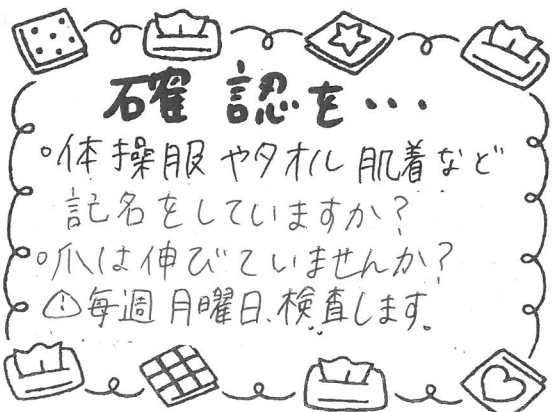 確認を・・・
○体操服やタオル肌着など
記名をしていますか?
○爪は伸びていませんか?
⚠毎週月曜日、検査します。